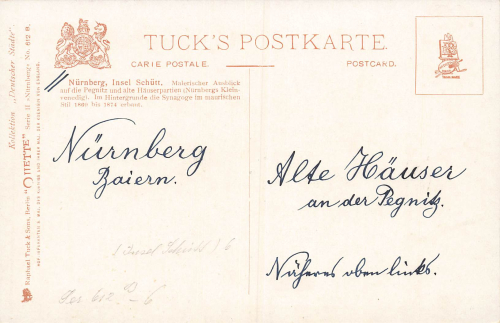 TUCK'S POSTKARTE.
CARTE POSTALE.
POSTCARD.
Nürnberg, Insel Schütt. Malerischer Ausblick
auf die Pegnitz und alte Häuserpartien (Nürnbergs Klein-
venedig). Im Hintergrunde die Synagoge im maurischen
Stil 1869 bis 1874 erbaut.
Nürnberg
Baiern.
Alte Häuser
an der Pegnitz.
Näheres oben links.
Insel Schütt
Ser 612 B - 6
Kollektion „Deutscher Städte“
Raphael Tuck & Sons, Berlin "OILETTE" Serie II (Nürnberg) No. 612 B.